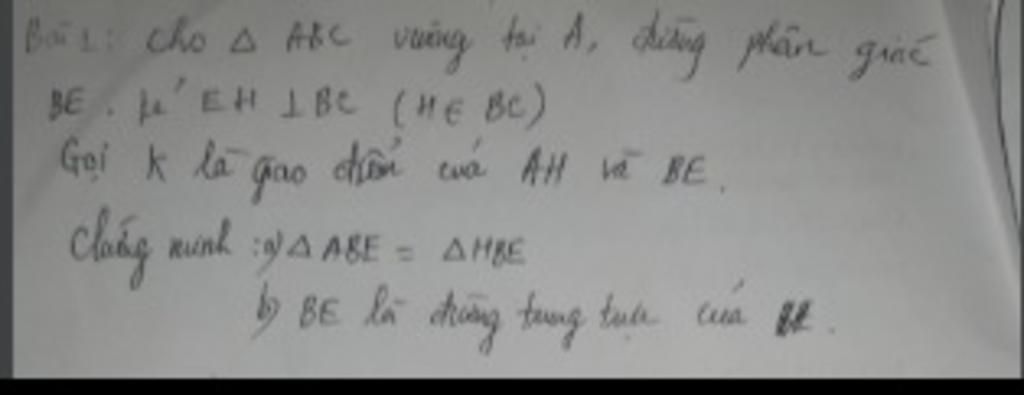 Bài 1: Cho Δ ABC vuông tại A, đường phân giác
BE. kẻ EH ⊥ BC (H ∈ BC)
Gọi K là giao điểm của AH và BE.
Chứng minh : a) Δ ABE = Δ HBE
b) BE là đường trung trực của